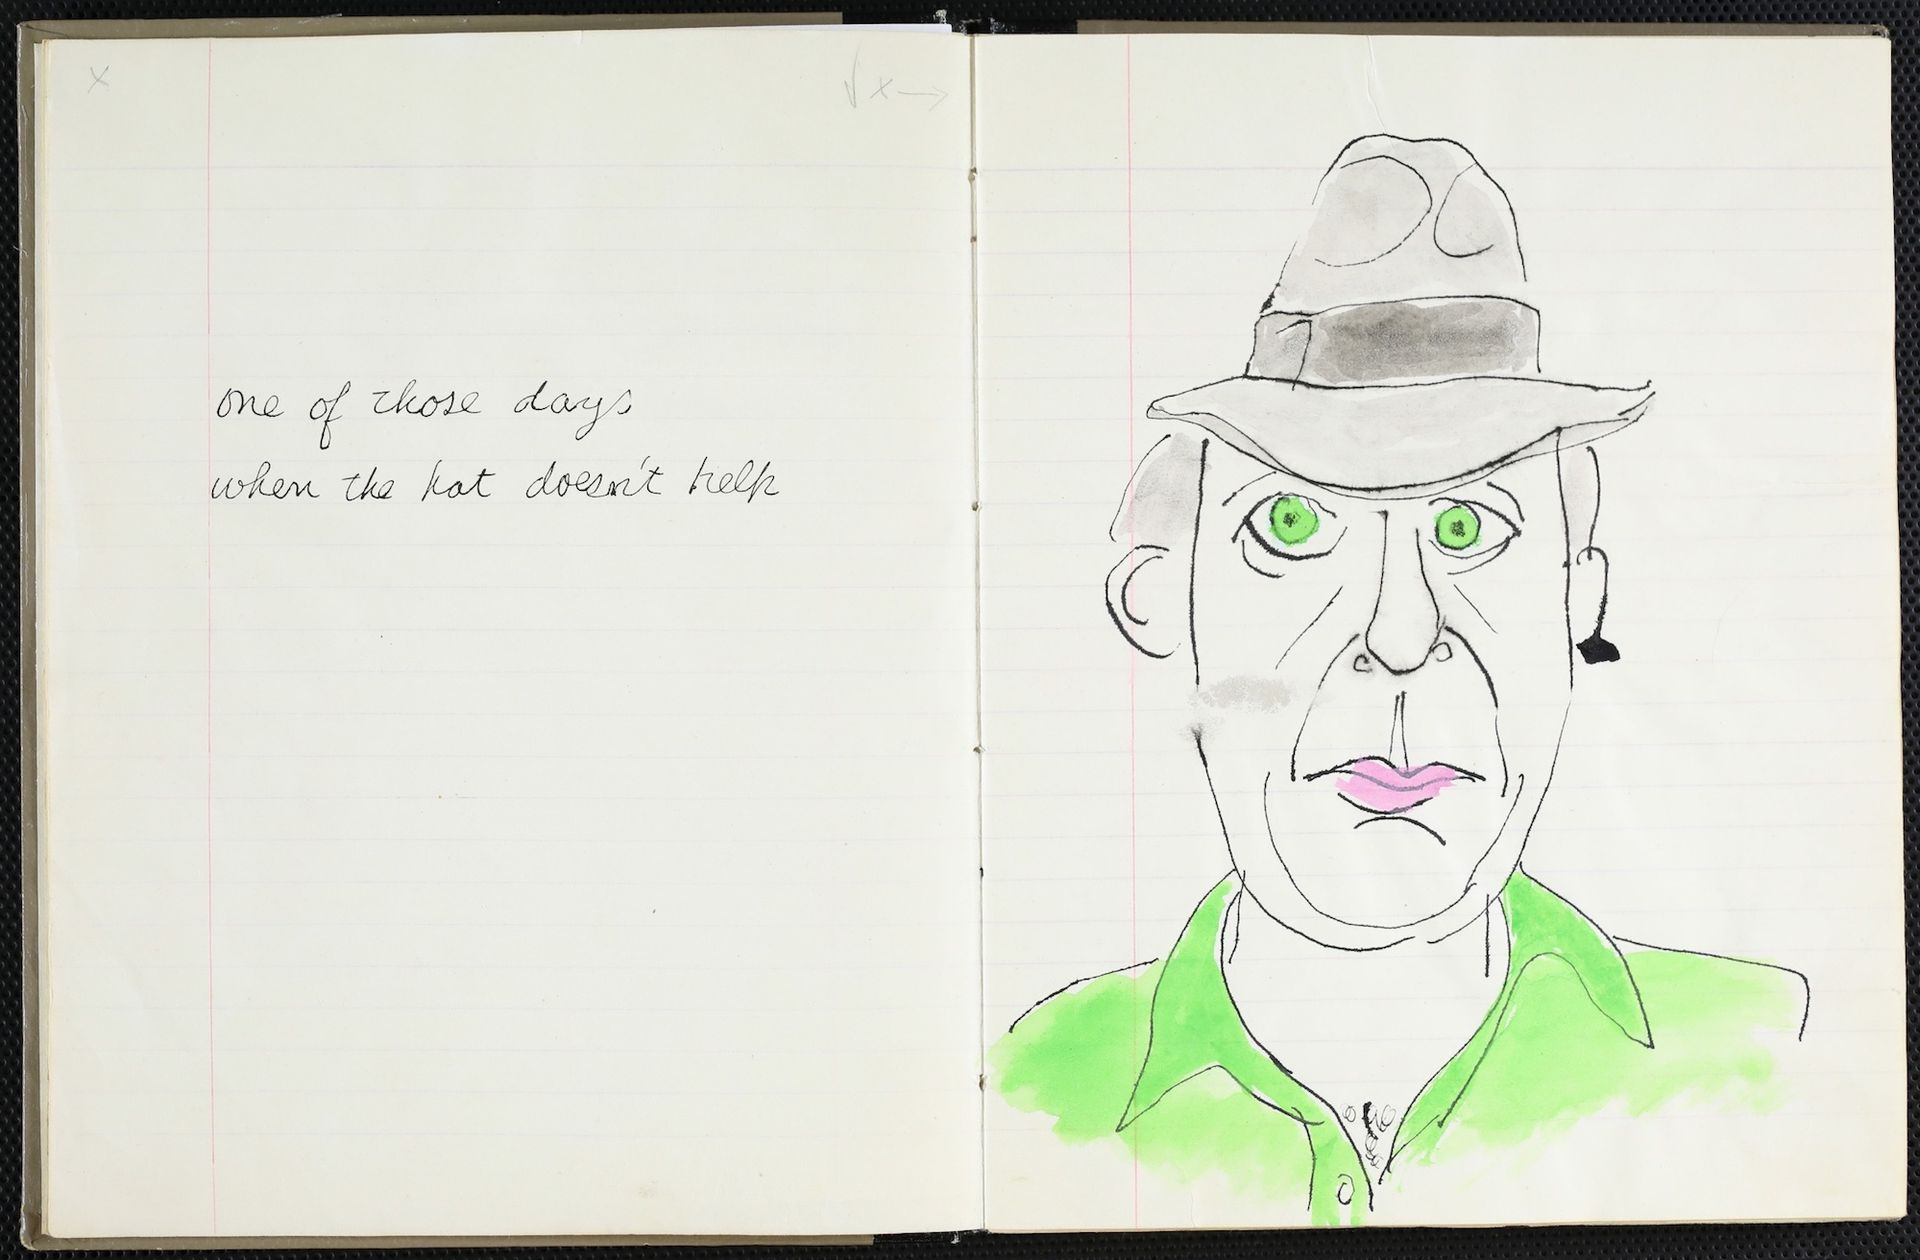 x
√ x →
one of those days
when the hat doesn't help